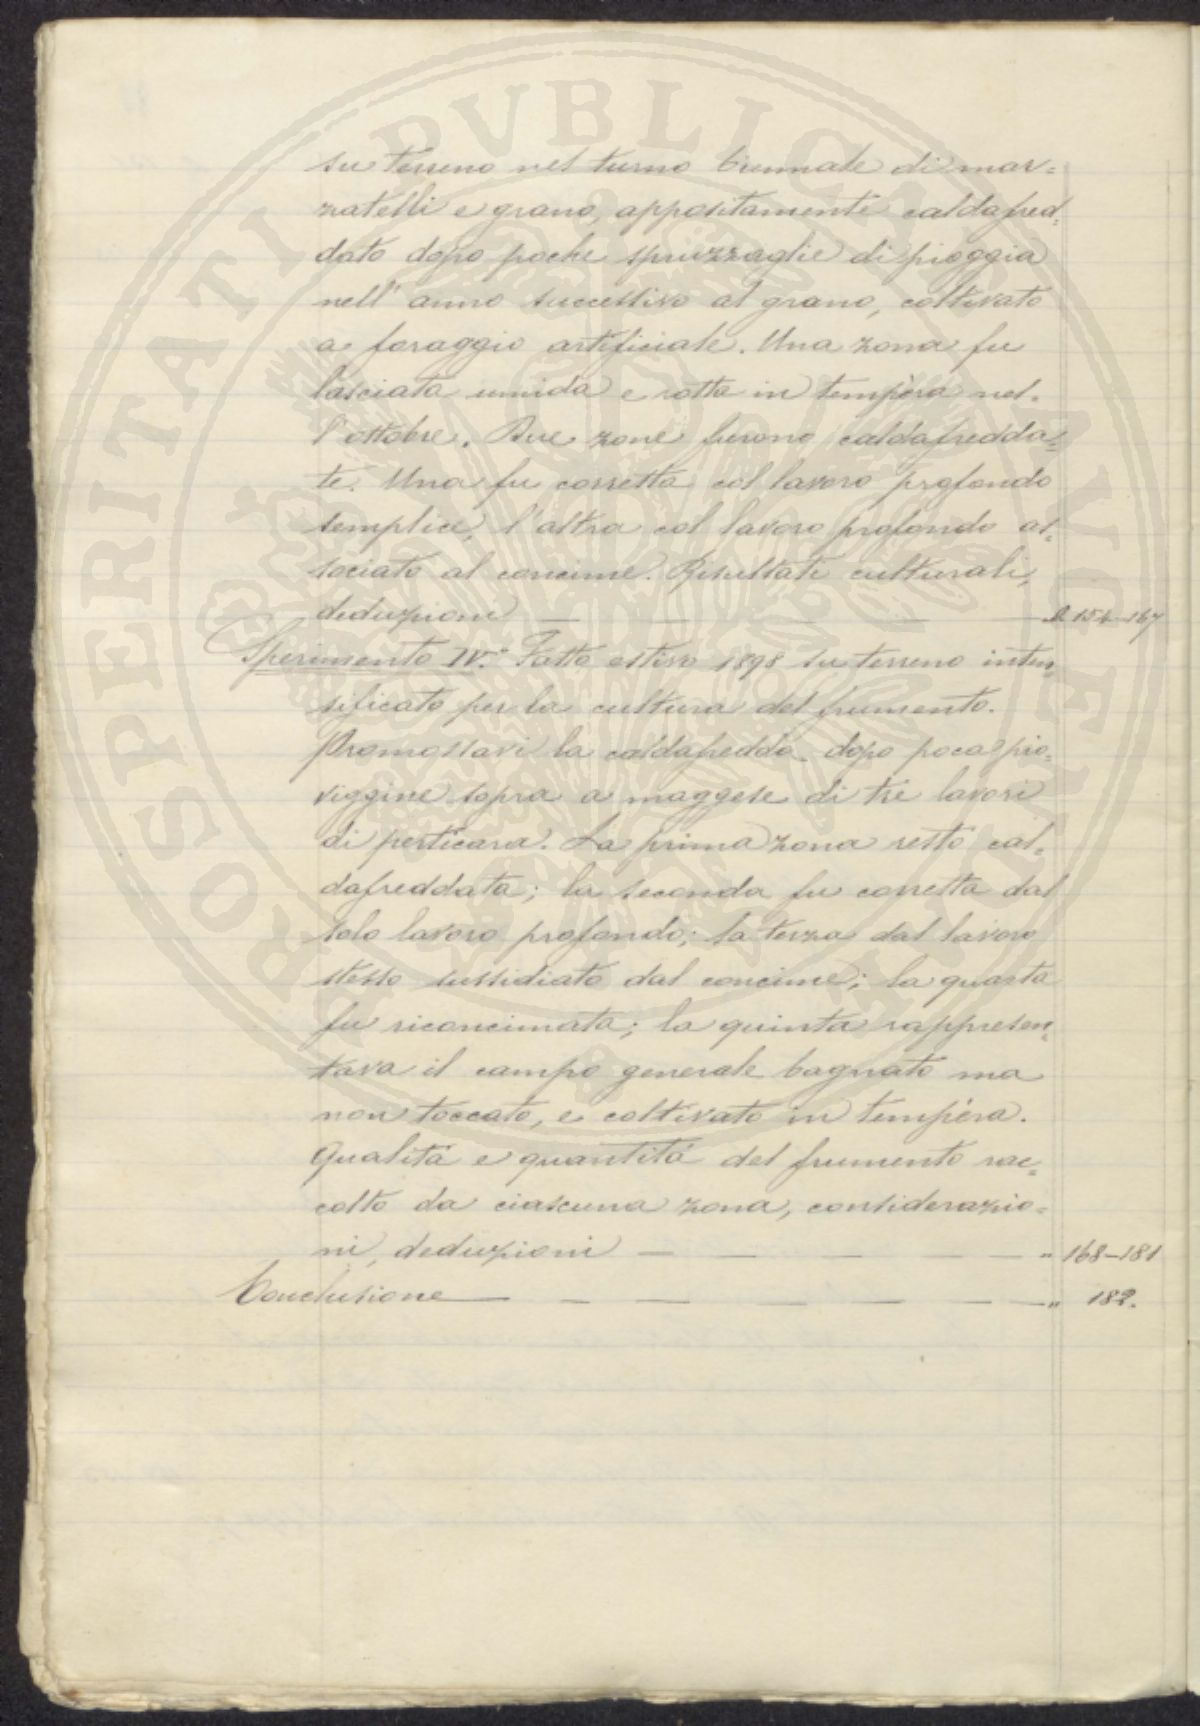 PROSPERITATI PVBLICAE AVGENDAE
su terreno nel turno biennale di mar=
zatelli e grano, appositamente caldafred=
dato dopo poche spruzzaglie di pioggia
nell'anno successivo al grano, coltivato
a foraggio artificiale. Una zona fu
lasciata umida e rotta in tempèra nel=
l'ottobre. Due zone furono caldafredda=
te. Una fu corretta col lavoro profondo
semplice, l'altra col lavoro profondo as=
sociato al concime. Risultati culturali,
deduzioni — — — — — 154-167
Sperimento IV.° Fatto estivo 1898 su terreno inten=
sificato per la cultura del frumento.
Promossavi la caldafredda dopo poca pio=
viggine sopra a maggese di tre lavori
di perticara. La prima zona restò cal=
dafreddata; la seconda fu corretta dal
solo lavoro profondo; la terza dal lavoro
stesso sussidiato dal concime; la quarta
fu riconcimata; la quinta rappresen=
tava il campo generale bagnato ma
non toccato, e coltivato in tempèra.
Qualità e quantità del frumento rac=
colto da ciascuna zona, considerazio=
ni, deduzioni — — — — — " 168-181
Conclusione — — — — — — — " 182.